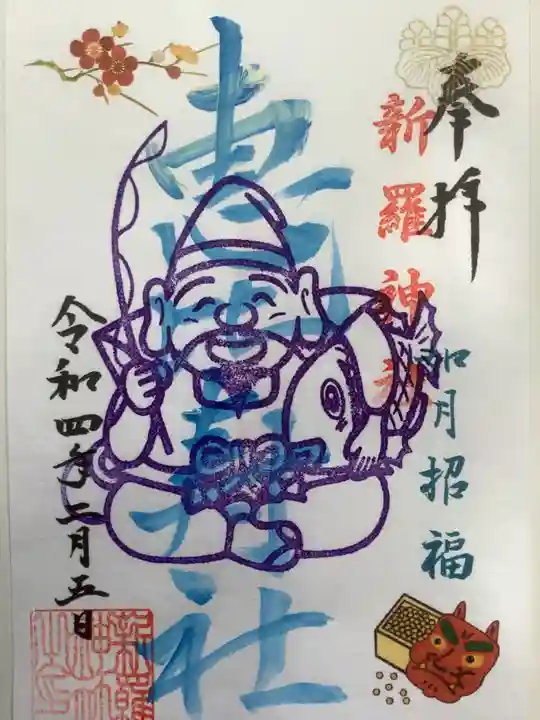 奉拝
新羅神社
如月招福
社
令和四年二月五日